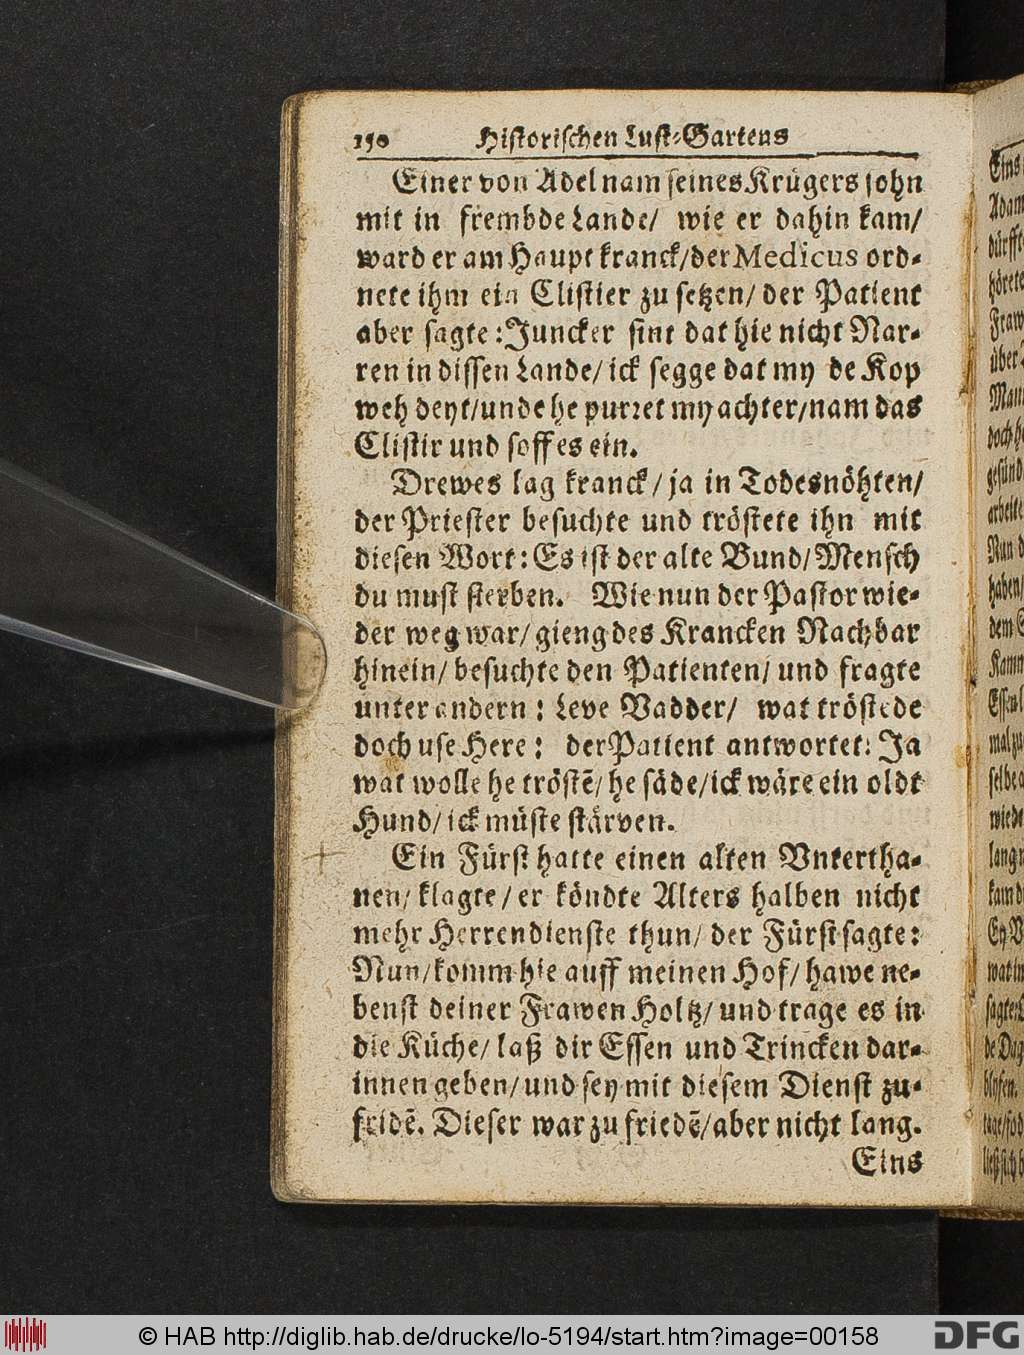 150 Historischen Lust-Gartens
Einer von Adel nam seines Krügers sohn
mit in frembde Lande/ wie er dahin kam/
ward er am Haupt kranck/ der Medicus ord-
nete ihm ein Clistier zu setzen/ der Patient
aber sagte: Juncker sint dat hie nicht Nar-
ren in dissen Lande/ ick segge dat my de Kop
weh deyt/ unde he purret my achter/ nam das
Clistir und soff es ein.
Drewes lag kranck/ ja in Todesnöhten/
der Priester besuchte und tröstete ihn mit
diesen Wort: Es ist der alte Bund/ Mensch
du must sterben. Wie nun der Pastor wie-
der weg war/ gieng des Krancken Nachbar
hinein/ besuchte den Patienten/ und fragte
unter andern: Leve Vadder/ wat tröstede
doch use Here: der Patient antwortet: Ja
wat wolle he tröstē/ he säde/ ick wäre ein oldt
Hund/ ick müste stärven.
Ein Fürst hatte einen alten Vntertha-
nen/ klagte/ er köndte Alters halben nicht
mehr Herrendienste thun/ der Fürst sagte:
Nun/ komm hie auff meinen Hof/ hawe ne-
benst deiner Frawen Holtz/ und trage es in
die Küche/ laß dir Essen und Trincken dar-
innen geben/ und sey mit diesem Dienst zu-
fridē. Dieser war zu friedē/ aber nicht lang.
Eins
© HAB http://diglib.hab.de/drucke/lo-5194/start.htm?image=00158
DFG